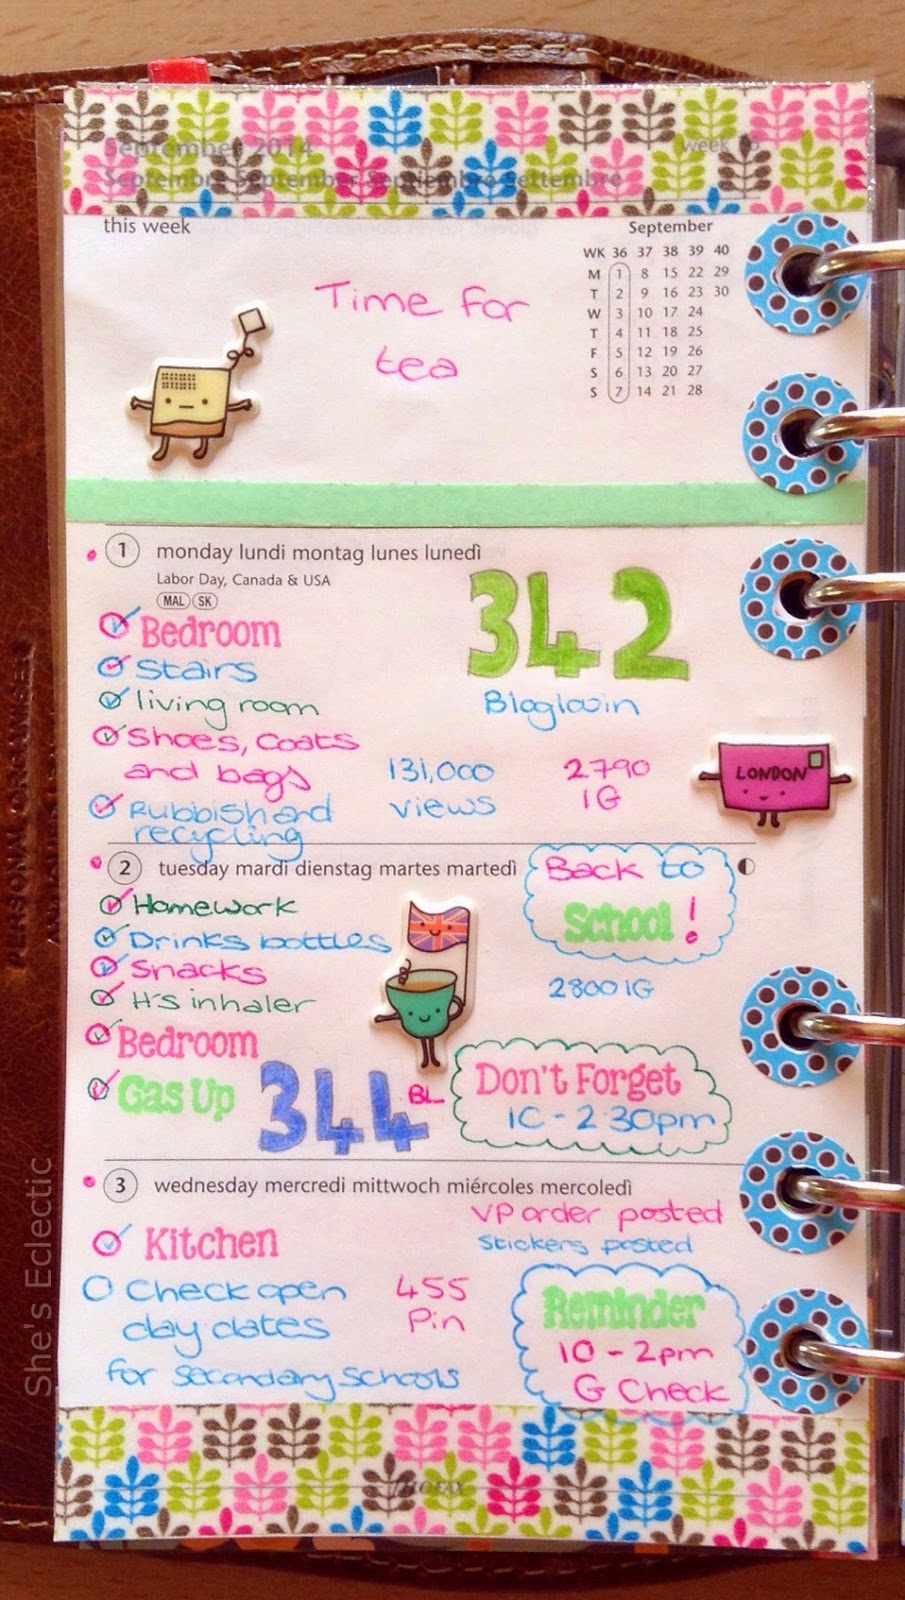 September 2014 week 36
Septembre September September Septiembre Settembre
this week
September
WK 36 37 38 39 40
M 1 8 15 22 29
T 2 9 16 23 30
W 3 10 17 24
T 4 11 18 25
F 5 12 19 26
S 6 13 20 27
S 7 14 21 28
Time for
tea
1 monday lundi montag lunes lunedì
Labor Day, Canada & USA
MAL SK
Bedroom
Stairs
living room
Shoes, coats
and bags
Rubbish and
recycling
342
Bloglovin
131,000
views
2790
IG
LONDON
2 tuesday mardi dienstag martes martedì
Homework
Drinks bottles
Snacks
H's inhaler
Bedroom
Gas Up
344 BL
Back to
School!
2800 IG
Don't Forget
10 - 2.30pm
3 wednesday mercredi mittwoch miércoles mercoledì
Kitchen
Check open
day dates
for secondary schools
455
Pin
VP order posted
stickers posted
Reminder
10 - 2pm
G Check
filofax
PERSONAL ORGANISER
She's Eclectic